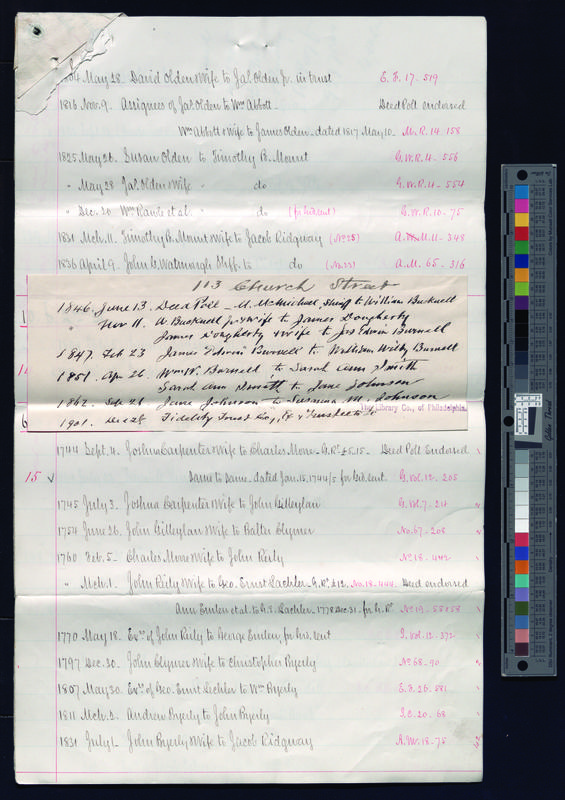 1804 May 28. David Olden & Wife to Jas. Olden Jr. in trust E. F. 17. 519
1816 Nov. 9. Assignees of Jas. Olden to Wm Abbott Deed Poll endorsed
Wm Abbott & Wife to James Olden - dated 1817 May 10. M. R. 14. 158
1825 May 26. Susan Olden to Timothy B. Mount G. W. R. 4 - 556
" May 28 Jas. Olden & Wife " do G. W. R. 4 - 554
" Dec. 20 Wm Rawle et al. " do (for Grd. rent) G. W. R. 10 - 75
1831 Mch. 11. Timothy B. Mount & Wife to Jacob Ridgway (No 25) A. M. 11 - 348
1836 April 9. John G. Watmough Shff. to do (No. 23) A. M. 65 - 316
113 Church Street
1846. June 13. Deed Poll - M. McMichael, Sheriff to William Bucknell
" Nov 11. W Bucknell Jr & wife to James Dougherty
James Dougherty & wife to Jos Edwin Burnell
1847. Feb 23 James Edwin Burnell to William Wilby Burnell
1851. Apr 26. Wm W. Burnell to Sarah Ann Smith
Sarah Ann Smith to Jane Johnson
1862. Sept 21 Jane Johnson to Susanna M. Johnson
The Library Co. of Philadelphia.
1901. Dec 28 Fidelity Trust Co.
1744 Sept. 4. Joshua Carpenter & Wife to Charles Mone - G. Rt. £5.15 - Deed Poll Endorsed
15 Same to Same - dated Jan. 15. 1744/5 for Grd. rent. G. Vol. 12 - 205
1745 July 3. Joshua Carpenter & Wife to John Gilleylan G. Vol. 7 - 24
1754 June 26. John Gilleylan & Wife to Balter Clymer No. 67 - 208
1760 Feb. 5 - Charles Mone & Wife to John Reily No 18 - 442
" Mch. 1. John Reily & Wife to Geo. Ernst Lechler - G. Rt. £12. No. 18 - 444. Deed endorsed
Ann Emlen et al. to G. E. Lechler - 1778 Dec. 31 - for G. R. No 19 - 58 & 58
1770 May 18. Exrs of John Reily to George Emlen, for Grd. rent I. Vol. 12 - 372
1797 Dec. 30. John Clymer & Wife to Christopher Byerly No 68 - 90
1807 May 30. Exrs of Geo. Ernst Lechler to Wm Byerly E. F. 26 - 581
1811 Mch. 2. Andrew Byerly to John Byerly I. C. 20 - 68
1831 July 1 - John Byerly & Wife to Jacob Ridgway A. M. 18 - 75